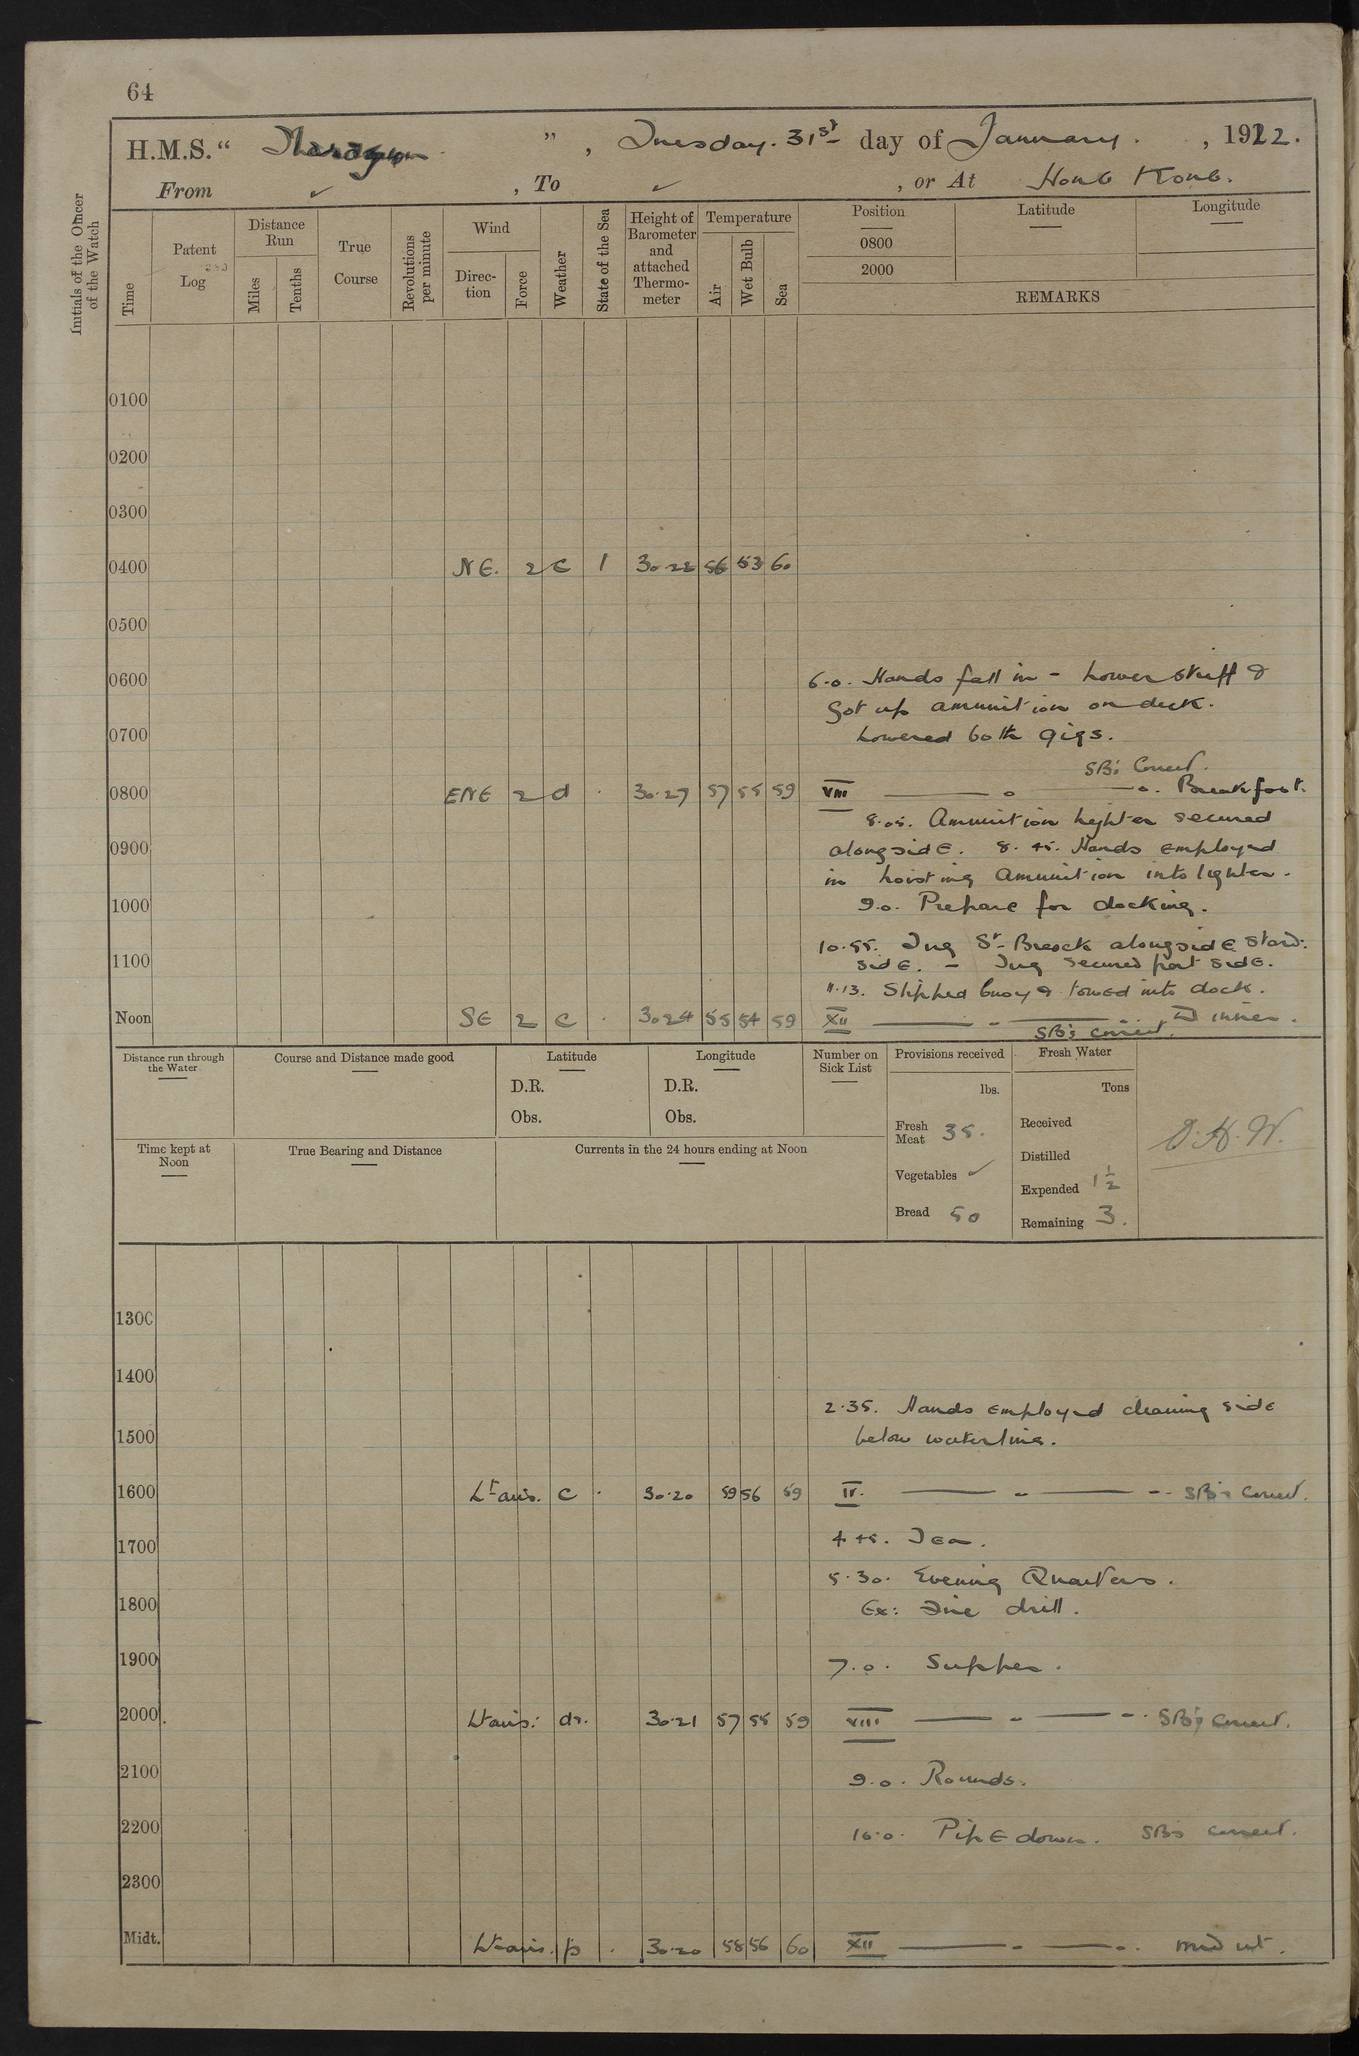 64
H.M.S. " " , Tuesday. 31st day of January. , 1922.
From ✓ , To ✓ , or At Hong Kong.
Initials of the Officer of the Watch
Time
Patent Log
Distance Run
Miles
Tenths
True Course
Revolutions per minute
Wind
Direction
Force
Weather
State of the Sea
Height of Barometer and attached Thermometer
Temperature
Air
Wet Bulb
Sea
Position
0800
2000
Latitude
Longitude
REMARKS
0100
0200
0300
0400 NE. 2 c 1 30.22 56 53 60
0500
0600 6.0. Hands fall in - Lower skiff &
Got up ammunition on deck.
0700 Lowered both gigs.
SB's Correct.
0800 ENE 2 d . 30.27 57 55 59 VIII Breakfast.
8.05. Ammunition lighter secured
0900 alongside. 8.45. Hands employed
in hoisting ammunition into lighter.
1000 9.0. Prepare for docking.
10.55. Tug St Breock alongside Starbd:
1100 side. - Tug secured port side.
11.13. Slipped buoy & towed into dock.
Noon SE 2 c . 30.24 55 54 59 XII Dinner.
SB's correct.
Distance run through the Water
Course and Distance made good
Latitude
D.R.
Obs.
Longitude
D.R.
Obs.
Number on Sick List
Provisions received
lbs.
Fresh Meat 35.
Vegetables ✓
Bread 50
Fresh Water
Tons
Received
Distilled
Expended 1 1/2
Remaining 3.
D.H.W.
Time kept at Noon
True Bearing and Distance
Currents in the 24 hours ending at Noon
1300
1400
2.35. Hands employed cleaning side
1500 below waterline.
1600 Lt airs. c . 30.20 59 56 59 IV. SB's Correct.
1700 4.45. Tea.
5.30. Evening Quarters.
1800 Ex: Fire drill.
1900 7.0. Supper.
2000 Lt airs: dr. 30.21 57 55 59 VIII SB's correct.
2100 9.0. Rounds.
2200 10.0. Pipe down. SB's correct.
2300
Midt. Lt airs. p . 30.20 58 56 60 XII